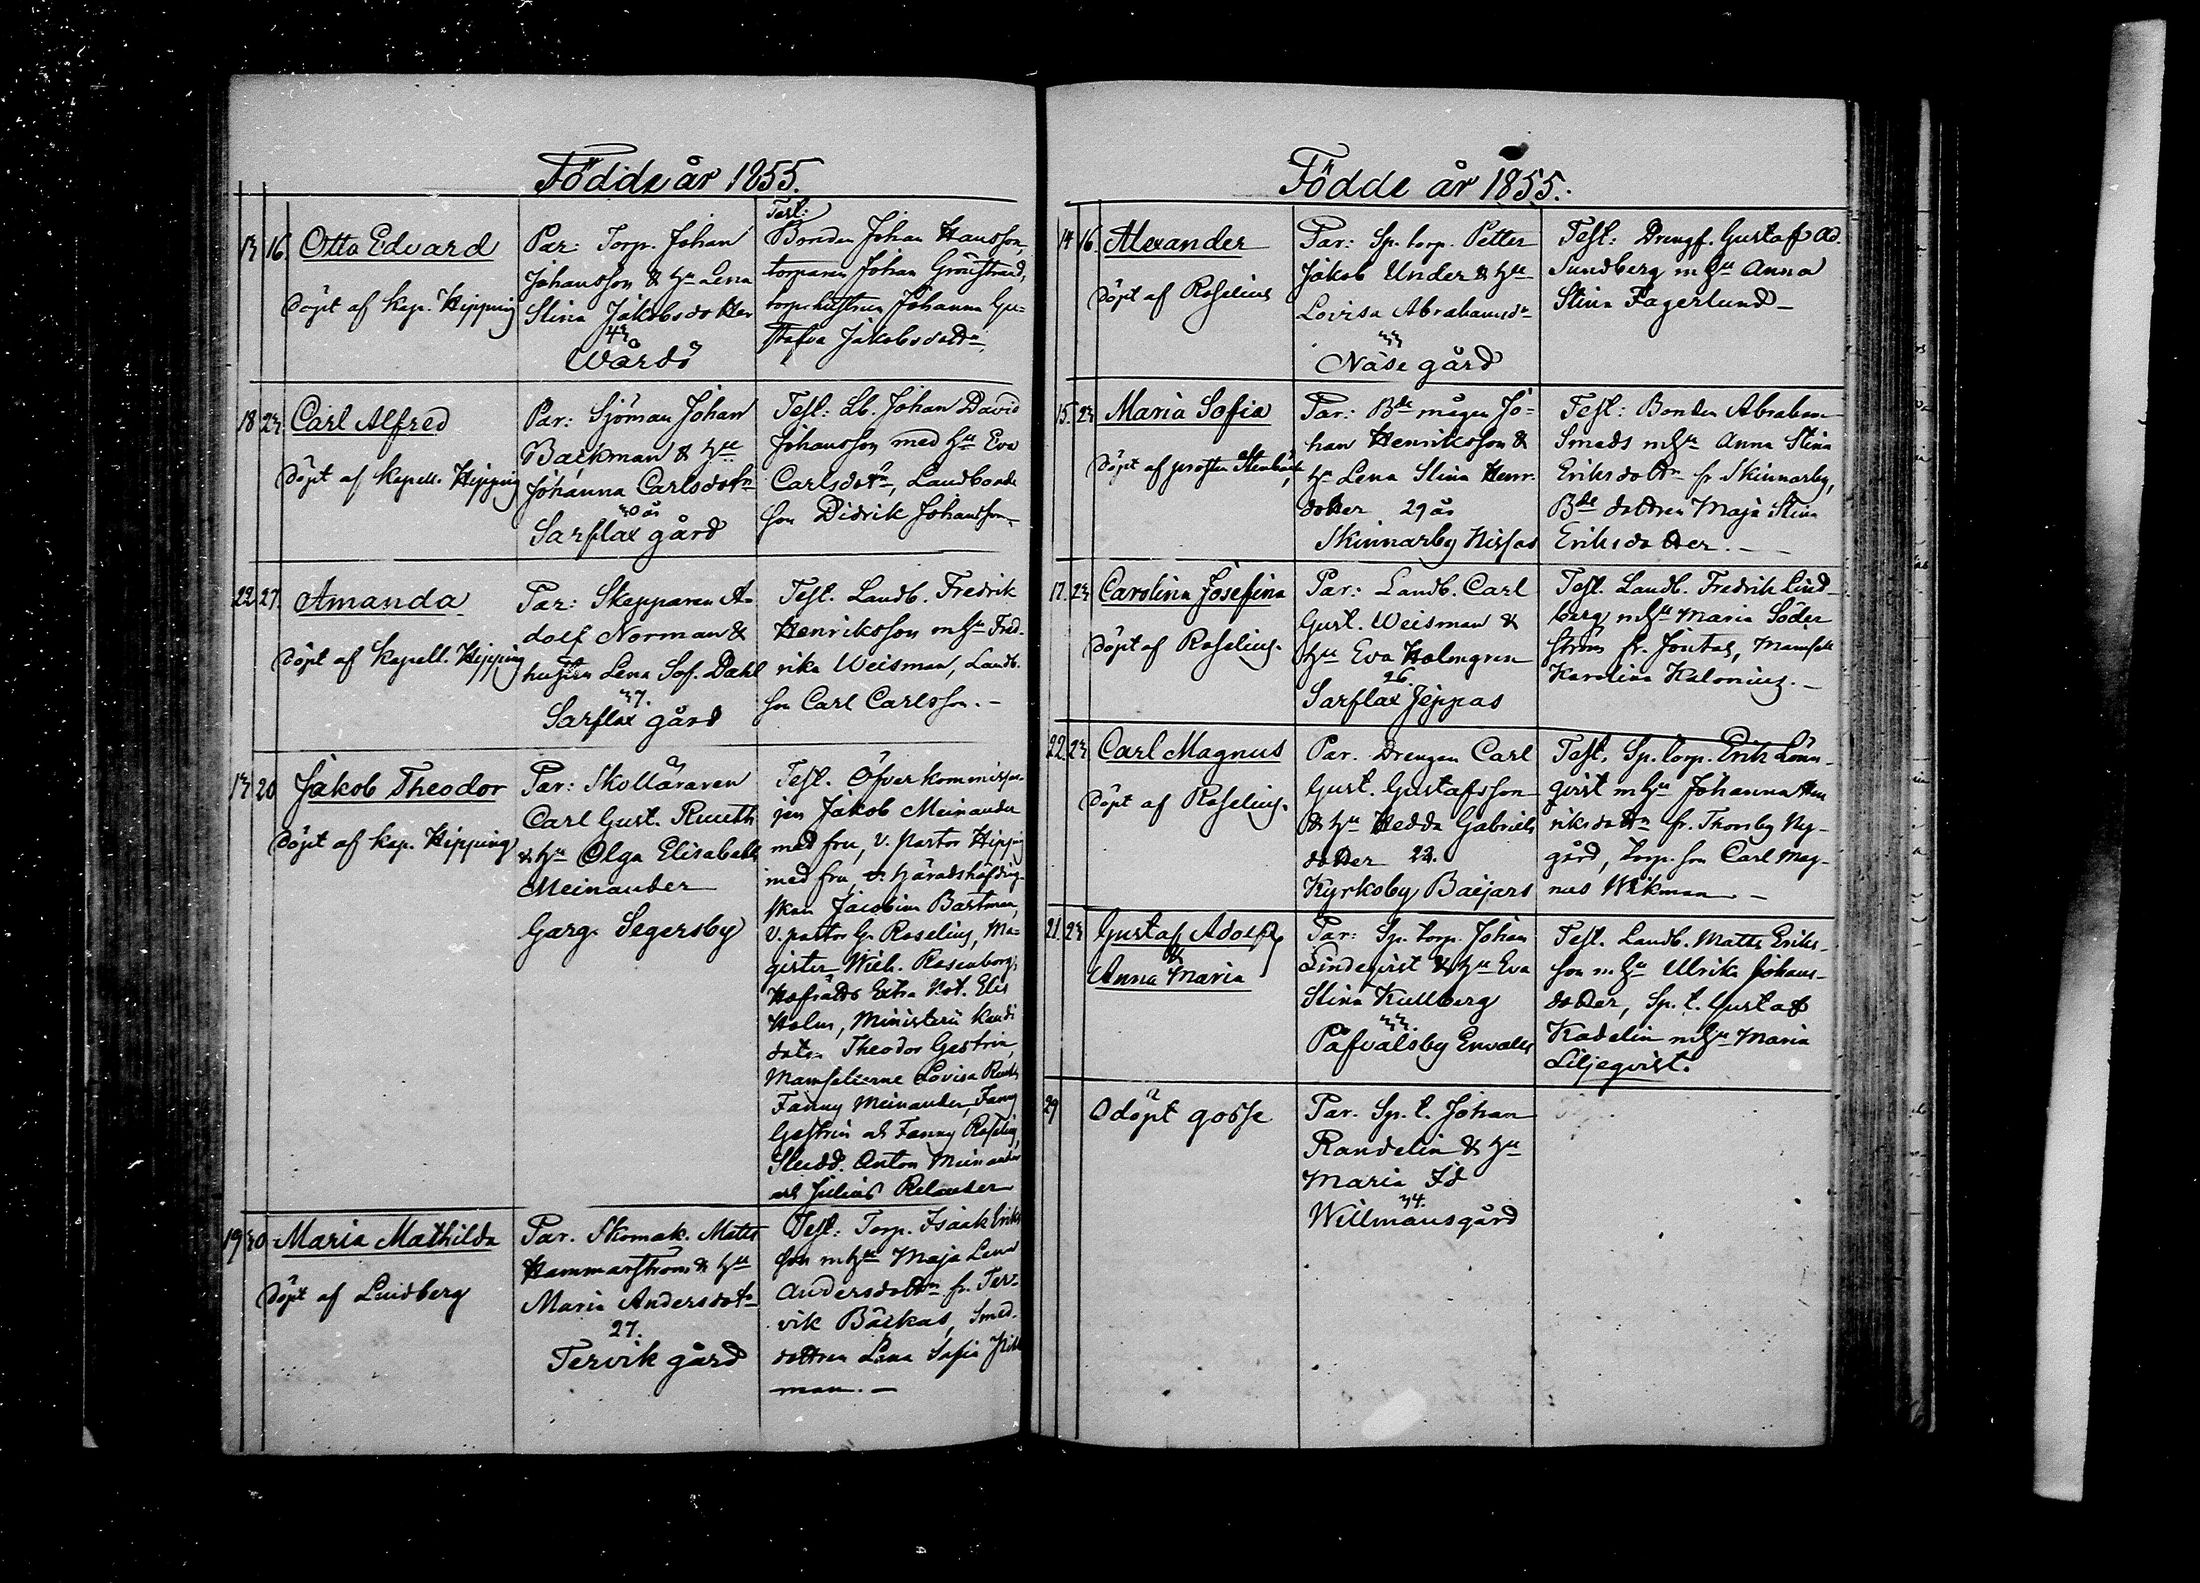 Födde år 1855.
13 16. Otto Edvard
Döpt af Kap. Hipping
Par: Torp. Johan
Johansson & hu Lena
Stina Jakobsdotter
43
Wårdö
Test:
Bonden Johan Hansson,
torparen Johan Grönstrand,
torp. hustrun Johanna Gu-
stafva Jakobsdottr.
18 23. Carl Alfred
Döpt af Kapell. Hipping
Par: Sjöman Johan
Backman & hu
Johanna Carlsdotr
30 år
Sarflax gård
Test: Lb. Johan David
Johansson med hu Eva
Carlsdotr, Landbonde
son Didrik Johansson.
22. 27. Amanda
Döpt af Kapell. Hipping
Par: Skepparen A-
dolf Norman &
hustrun Lena Sof. Dahl
37.
Sarflax gård
Test. Landb. Fredrik
Henriksson m hu Fred-
rika Weisman, Landb.
son Carl Carlsson. -
13 20 Jakob Theodor
Döpt af Kap. Hipping
Par: Skolläraren
Carl Gust. Rmuth
& hu Olga Elisabeth
Meinander
Garg. Segersby
Test. Öfverkommissa-
rien Jakob Meinander
med fru, v. pastor Hipping
med fru, häradshöfding-
skan Jacobina Bastman,
v. pastor G. Roselius, Ma-
gister Wilh. Rosenborg,
Hofrätts Extra Not. Elis
Holm, Ministerii Kandi-
daten Theodor Gestrin,
Mamsellerne Lovisa
Fanny Meinander, Fanny
Gestrin och Fanny Roselius,
Studd. Anton Meinander
och Julius Relander
19 30 Maria Mathilda
Döpt af Lindberg
Par. Skomak. Matts
Hammarström & hu
Maria Andersdotr
27.
Tervik gård
Test: Torp. Isaak Eriks
son m hu Maja Lena
Andersdottr fr. Ter-
vik Backas, Smed-
dottren Lena Sofia
man. -
Födde år 1855.
14 16. Alexander
Döpt af Roselius
Par: Sp. torp. Petter
Jakob Under & hu
Lovisa Abrahamsdr
33
Näse gård
Test: Drengf. Gustaf Ad.
Sundberg m hu Anna
Stina Fagerlund -
15. 23 Maria Sofia
Döpt af prosten Stenbäck
Par: Bde mågen Jo-
han Henriksson &
hu Lena Stina Henr.
dotter 29 år
Skinnarby Nissas
Test: Bonden Abraham
Smeds m hu Anna Stina
Eriksdottr fr Skinnarby,
Bde dottren Maja Stina
Eriksdotter. -
17. 23 Carolina Josefina
Döpt af Roselius.
Par: Landb. Carl
Gust. Weisman &
hu Eva Holmgren
26.
Sarflax Jeppas
Test. Landb. Fredrik Lind-
berg m hu Maria Söder
ström fr. Jontas, Mamsell
Karolina Kalonius. -
22. 23 Carl Magnus
Döpt af Roselius.
Par. Drengen Carl
Gust. Gustafsson
& hu Hedda Gabriels
dotter 23.
Kyrkoby Baejars
Test. Sp. torp. Erik Lönn-
qvist m hu Johanna Hen
riksdottr fr. Thorsby Ny-
gård, Torp. son Carl Mag-
nus Wikman -
21. 23 Gustaf Adolf
&
Anna Maria
Par: Sp. torp. Johan
Lindeqvist & hu Eva
Stina Kullberg
33.
Påfvalsby Envalls
Test. Landb. Matts Eriks-
son m hu Ulrika Johans-
dotter, Sp. t. Gustaf
Kadelin m hu Maria
Liljeqvist.
29 Odöpt gosse
Par. Sp. t. Johan
Randelin & hu
Maria Id
34.
Willmansgård